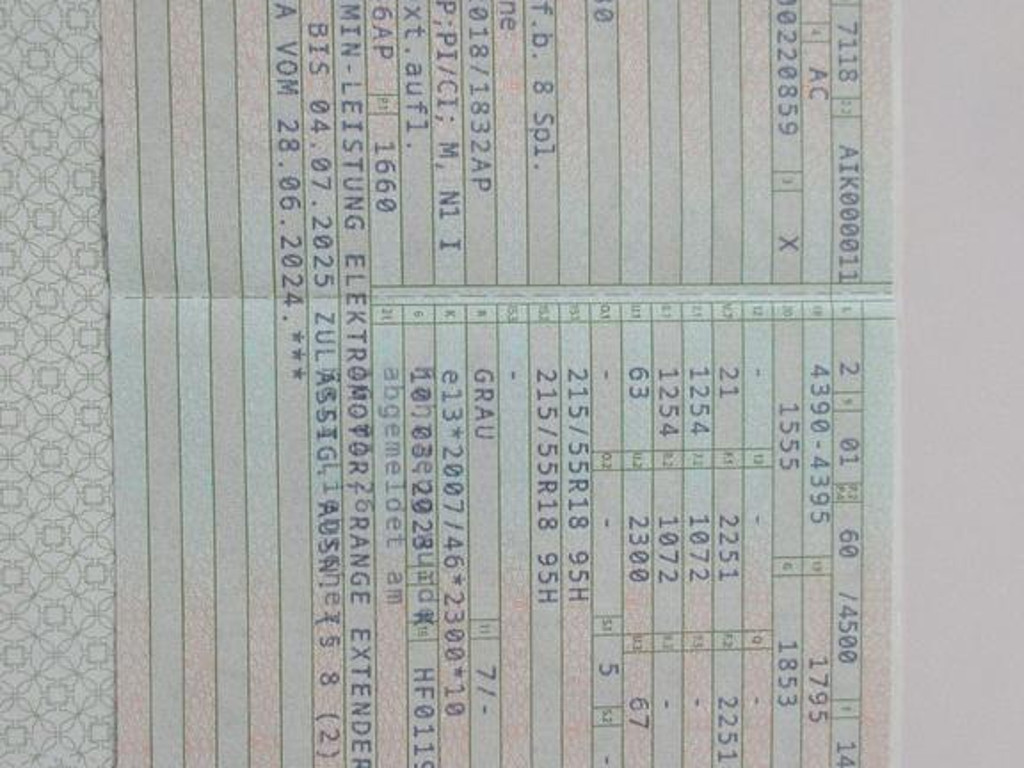 7118 AIK000011 2 01 60 /4500 14
AC 4390-4395 1795
00220859 X 1555 1853
- - -
21 2251 2251
1254 1072 -
1254 1072 -
63 2300 67
- - 5 -
215/55R18 95H
f.b. 8 Spl. 215/55R18 95H
ne -
018/1832AP GRAU 7/-
P;PI/CI; M, N1 I e13*2007/46*2300*10
xt.aufl. K HF0119
6AP 1660 abgemeldet am
MIN-LEISTUNG RANGE EXTENDER
BIS 04.07.2025 8 (2)
A VOM 28.06.2024.***